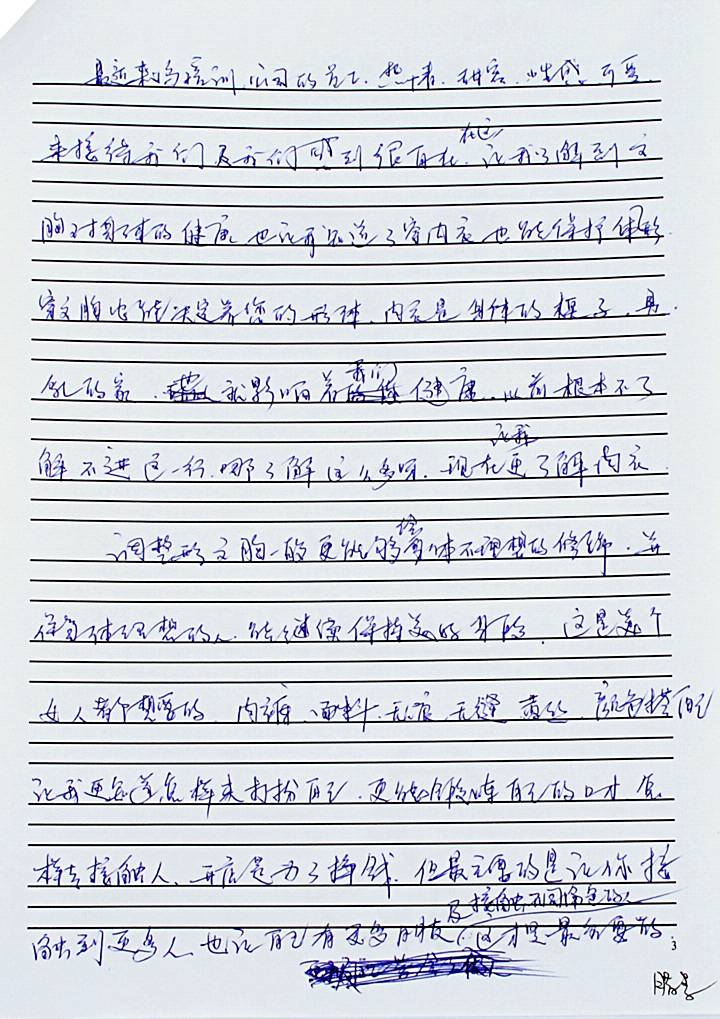 最近来到培训,公司的员工.热情.
来接待我们及我们感到很自在.在这让我了解到文
胸对身体的健康,也让我知道了穿内衣也能保护体形.
穿文胸也能决定着您的形体,内衣是身体的模子,是
乳的家.就影响着我们健康.以前根本不了
解不进这一行.哪了解这么多呀.现在让我更了解内衣
调整形文胸一般更能够身体不理想的修饰.并
保身体理想的人.能继续保持美好身段.这是每个
女人都想要的.内裤.面料.无痕.无缝.颜色搭配
让我更知道怎样来打扮自己.更能锻炼自己的口才怎
样去接触人.开店是为了挣钱.但最主要的是让你接
触到更多人也让自己有更多朋友及接触不同角色的人.这才是最重要的.
3